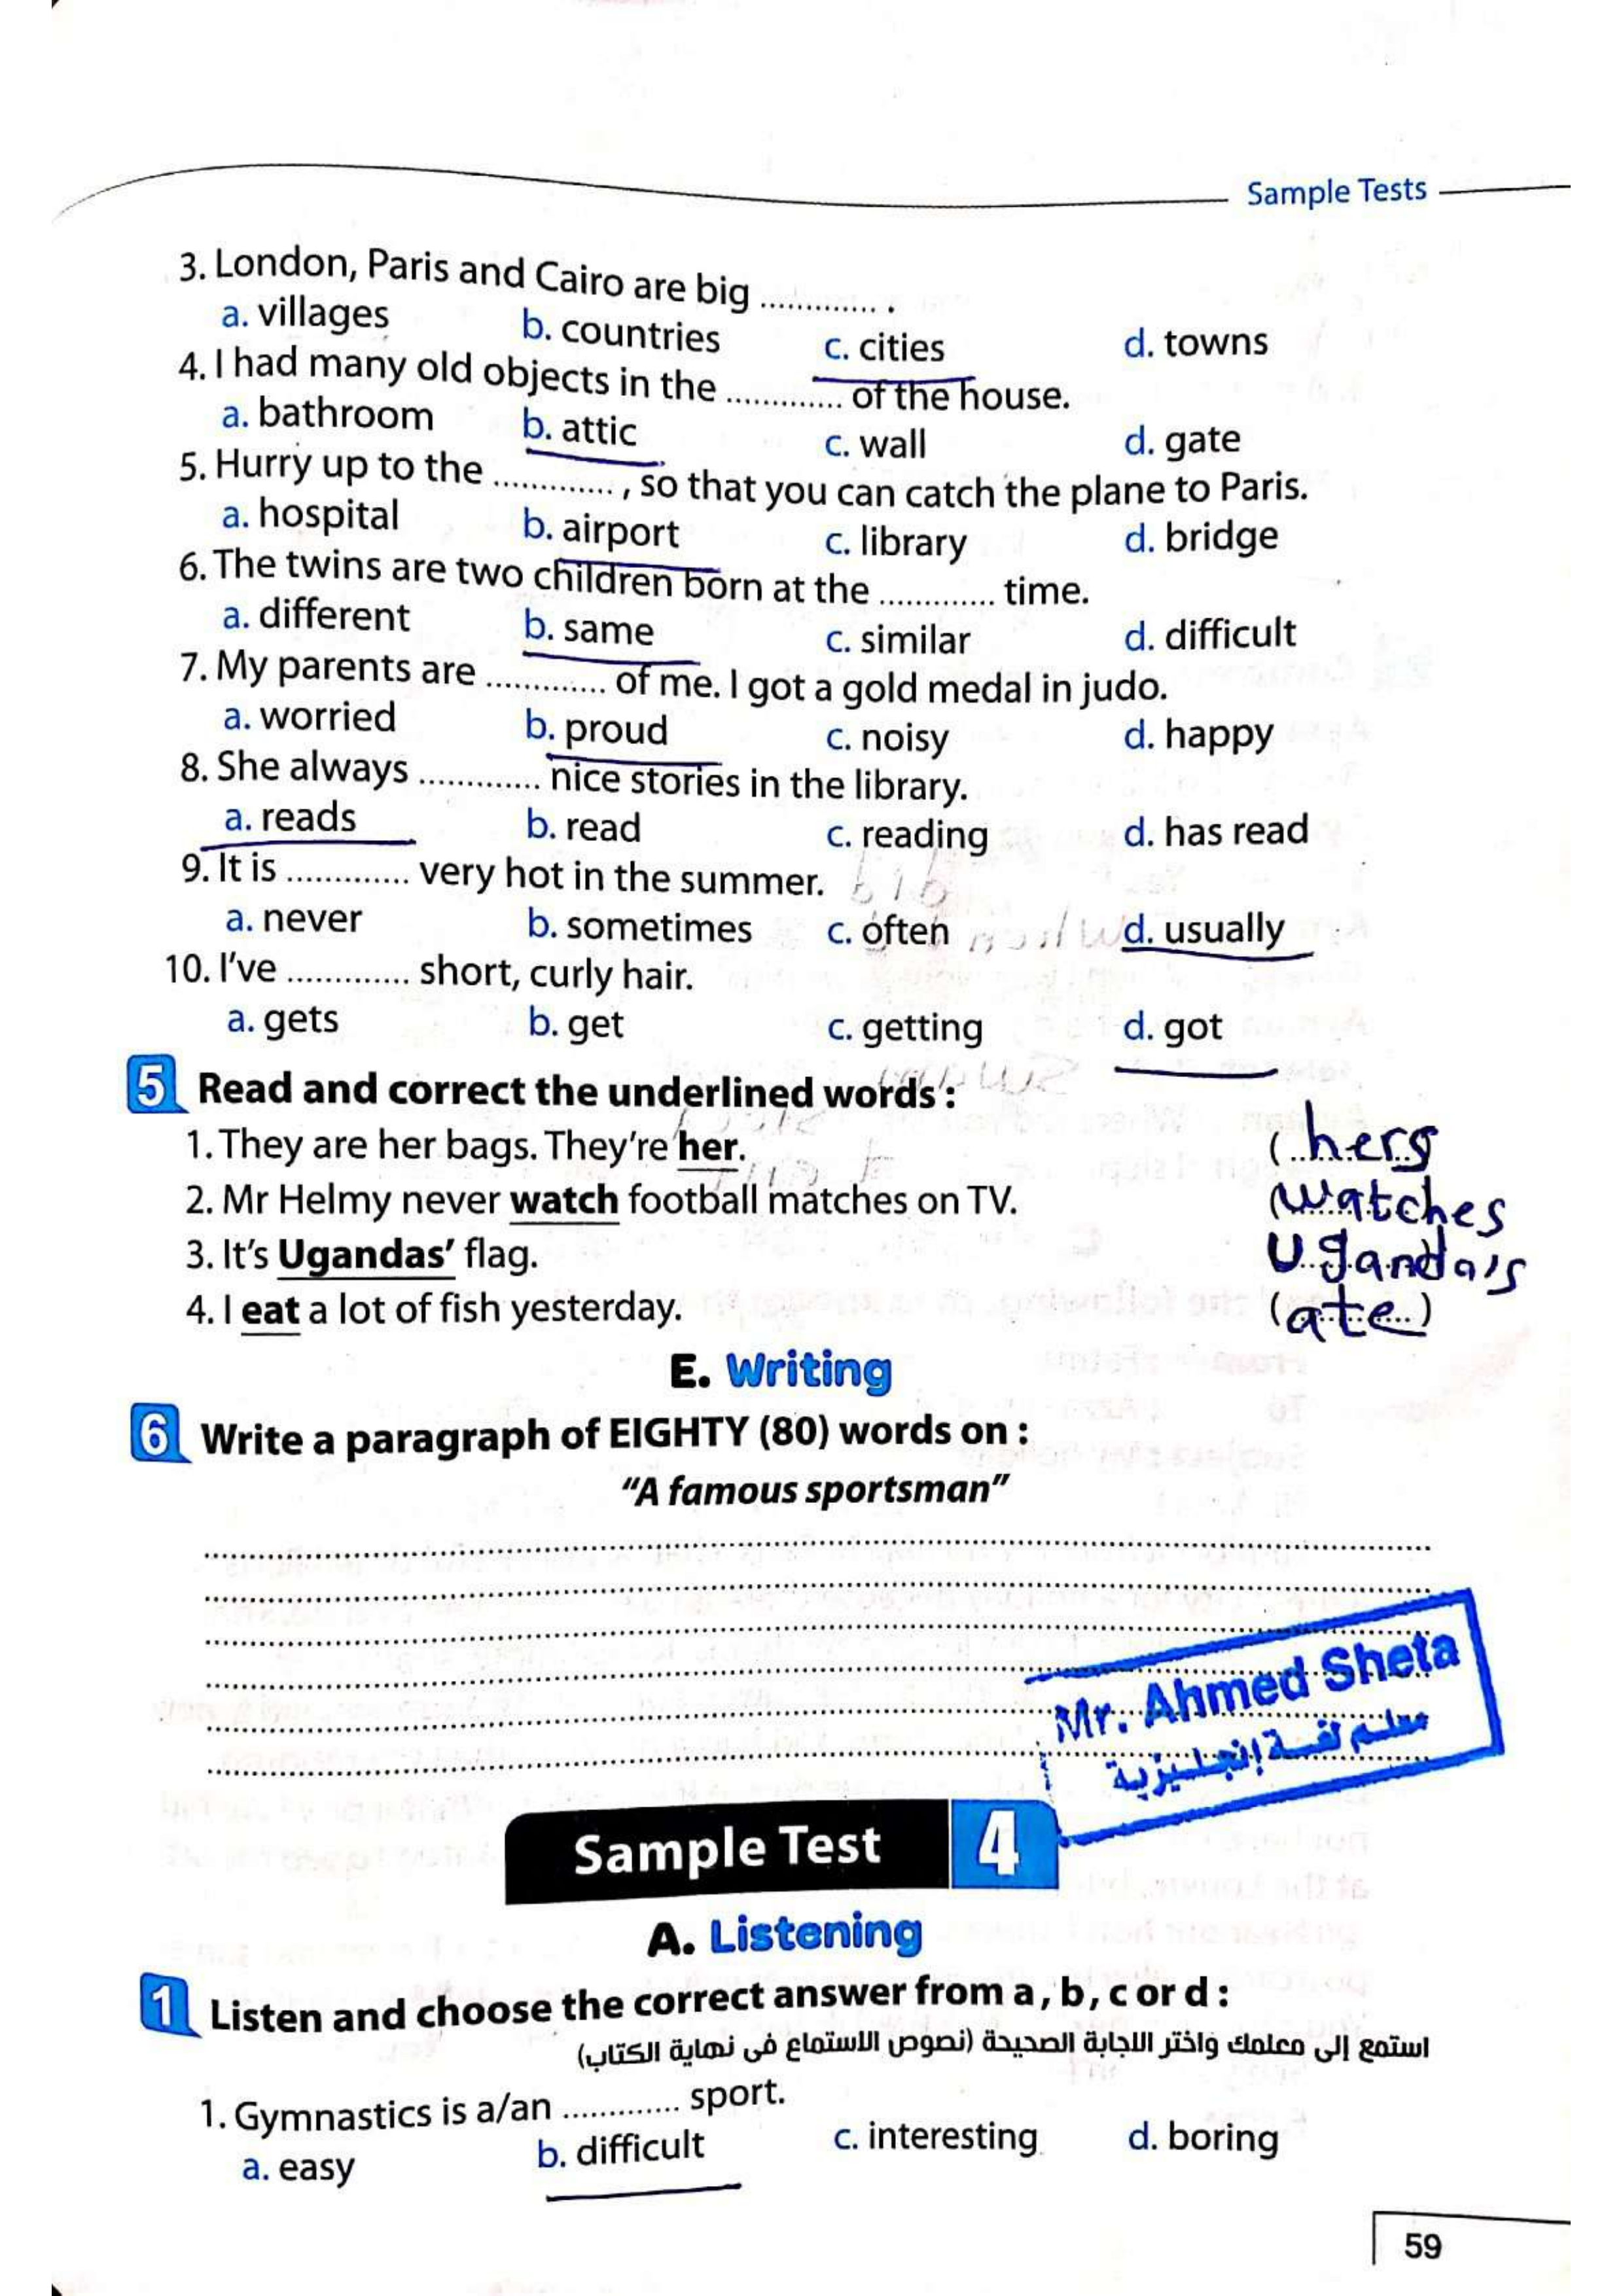 Sample Tests
3. London, Paris and Cairo are big ............. .
a. villages b. countries c. cities d. towns
4. I had many old objects in the ............. of the house.
a. bathroom b. attic c. wall d. gate
5. Hurry up to the ............. , so that you can catch the plane to Paris.
a. hospital b. airport c. library d. bridge
6. The twins are two children born at the ............. time.
a. different b. same c. similar d. difficult
7. My parents are ............. of me. I got a gold medal in judo.
a. worried b. proud c. noisy d. happy
8. She always ............. nice stories in the library.
a. reads b. read c. reading d. has read
9. It is ............. very hot in the summer.
a. never b. sometimes c. often d. usually
10. I've ............. short, curly hair.
a. gets b. get c. getting d. got
5 Read and correct the underlined words :
1. They are her bags. They're her. (hers
2. Mr Helmy never watch football matches on TV. (watches
3. It's Ugandas' flag. Uganda's
4. I eat a lot of fish yesterday. (ate)
E. Writing
6 Write a paragraph of EIGHTY (80) words on :
"A famous sportsman"
Mr. Ahmed Sheta
معلم لغة إنجليزية
Sample Test 4
A. Listening
1 Listen and choose the correct answer from a , b , c or d :
استمع إلى معلمك واختر الاجابة الصحيحة (نصوص الاستماع فى نهاية الكتاب)
1. Gymnastics is a/an ............. sport.
a. easy b. difficult c. interesting d. boring
59